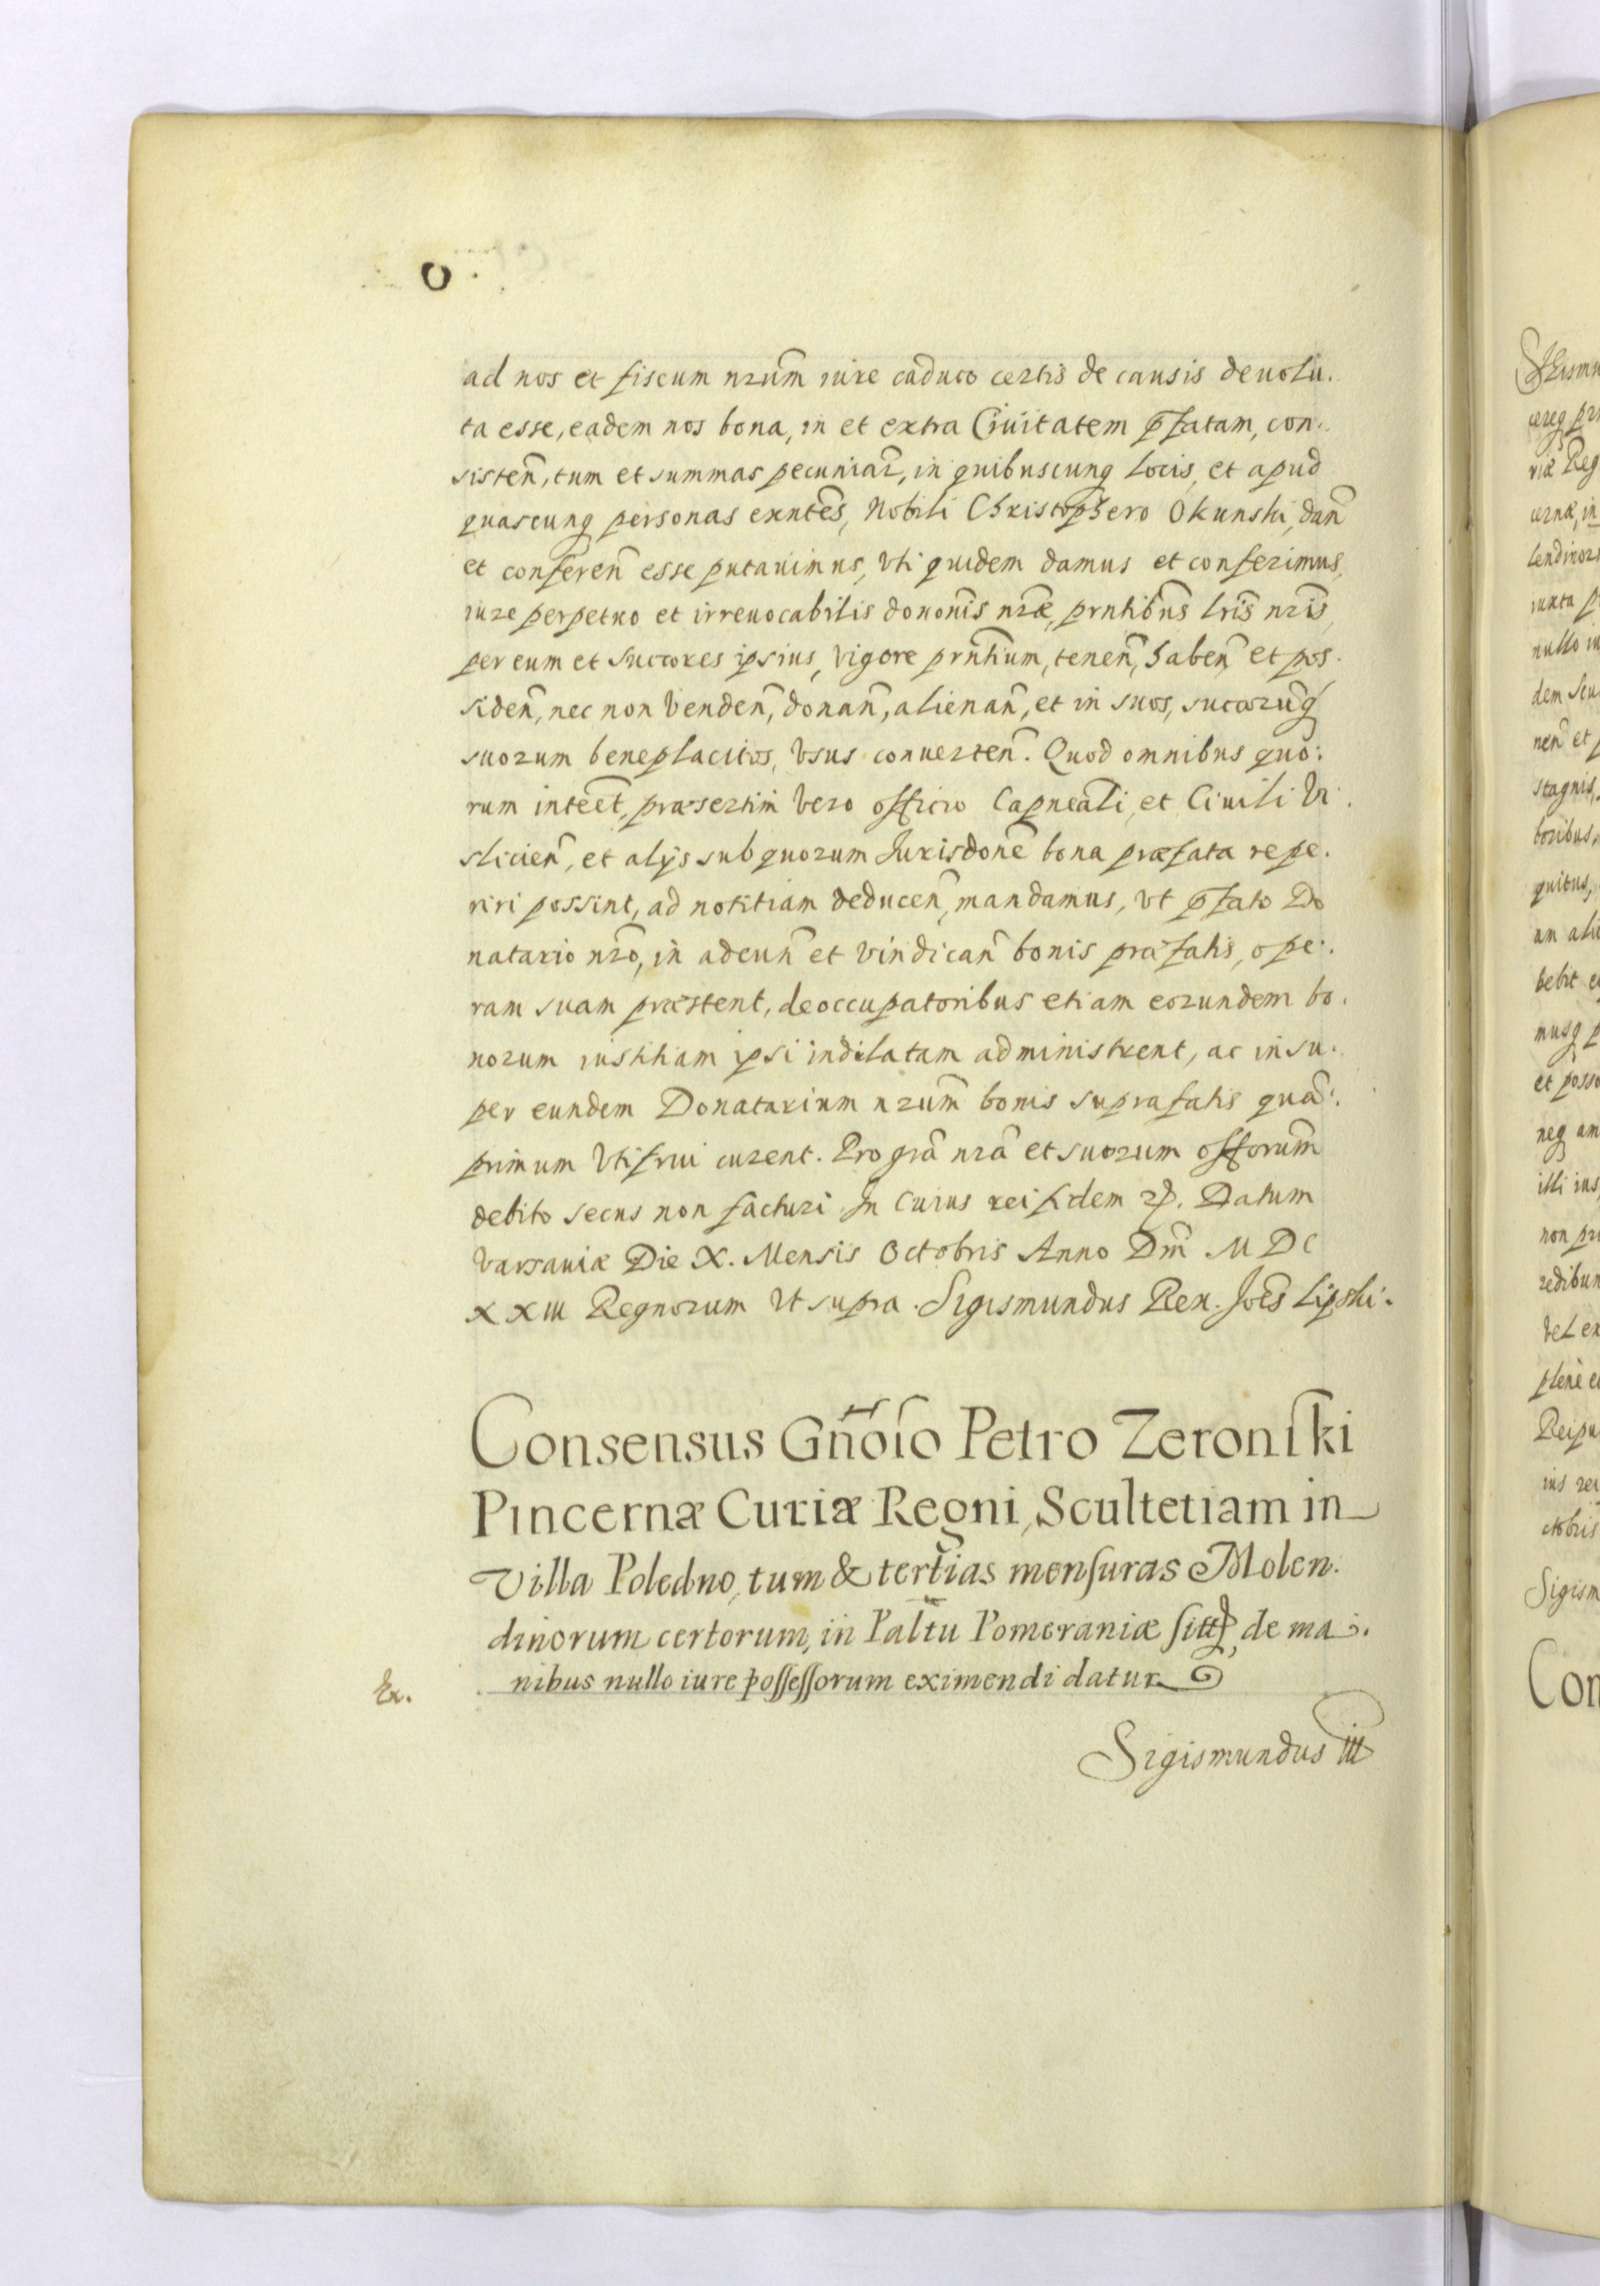 ad nos et fiscum nrũm iure caduco certis de causis deuolu.
ta esse, eadem nos bona, in et extra Ciuitatem pfatam, con.
sisteñ, tum et summas pecuniar, in quibuscunq locis, et apud
quascunq personas exntẽs, Nobili Christophero Okunski, dañ
et confereñ esse putauimus, Vti quidem damus et conferimus,
iure perpetuo et irreuocabilis dononis nræ, prntibus lris nris,
per eum et Succores ipsius, vigore prntium, teneñ, habeñ et pos.
sideñ, nec non vendeñ, donañ, alienañ, et in suos, succorũq
suorum beneplacitos, vsus conuerteñ. Quod omnibus quo:
rum inteẽt, præsertim vero officio Capneali, et Ciuili Vi.
slicieñ, et alijs sub quorum Jurisdone bona præfata repe.
riri possint, ad notitiam deduceñ, mandamus, vt pfato Do
natario nro, in adeuñ et vindicañ bonis præfatis, ope:
ram suam præstent, de occupatoribus etiam eorundem bo.
norum iustitiam ipsi indilatam administrent, ac insu.
per eundem Donatarium nrũm bonis suprafatis quã:
primum Vtifrui curent. Pro grã nrã et suorum offorũm
debito secus non facturi. In Cuius rei fidem etc. Datum
Varsauiæ Die X. Mensis Octobris Anno Dm̃ MDC
XXIII Regnorum Vt supra. Sigismundus Rex. Joẽs Lipski.
Consensus Gñoso Petro Zeronſki
Pincernæ Curiæ Regni, Scultetiam in
Villa Poledno, tum & tertias menſuras Molen.
dinorum certorum, in Paltu Pomeraniæ ſitt, de ma:
nibus nullo iure poſſeſſorum eximendi datur
Ex.
Sigismundus III